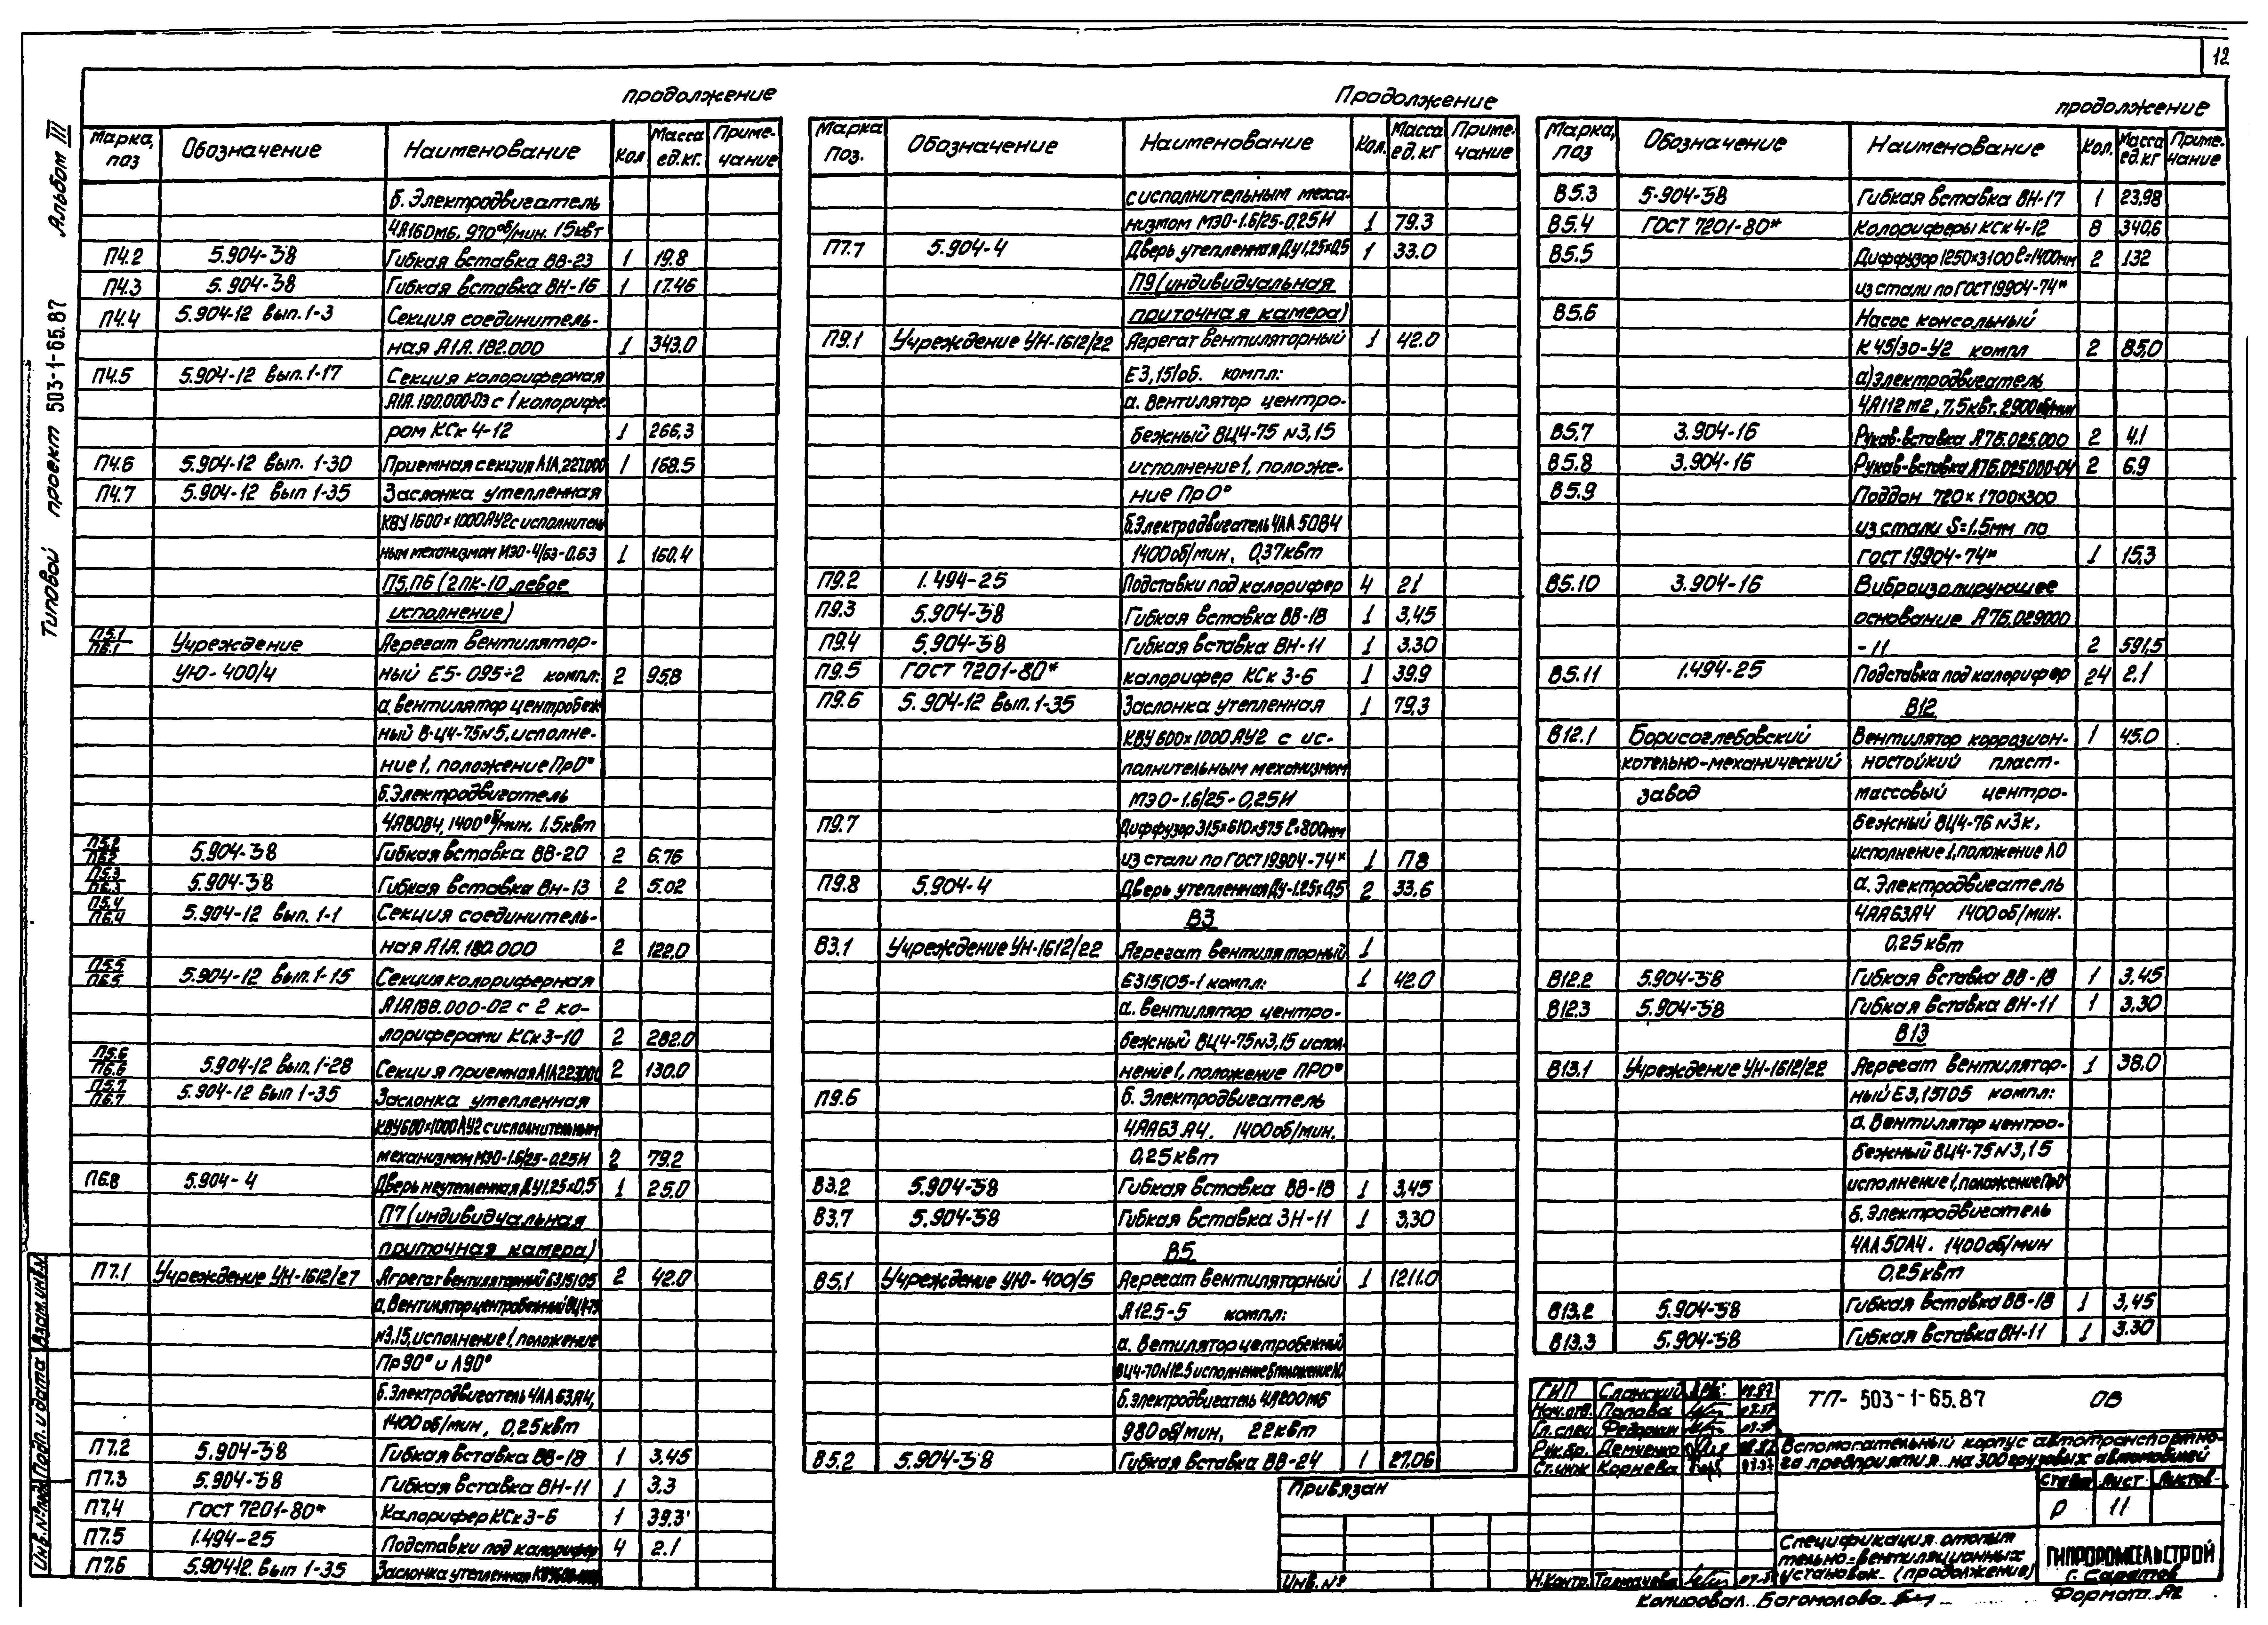 12
Альбом III
Типовой проект 503-1-65.87
продолжение
Марка, поз Обозначение Наименование Кол Масса ед.кг. Приме-чание
б. Электродвигатель
4А160М6, 970 об/мин. 15квт
П4.2 5.904-38 Гибкая вставка ВВ-23 1 19.8
П4.3 5.904-38 Гибкая вставка ВН-16 1 17.46
П4.4 5.904-12 вып.1-3 Секция соединитель-
ная А1А.182.000 1 343.0
П4.5 5.904-12 вып.1-17 Секция колориферная
А1А.190.000-03 с 1 колорифе-
ром КСк 4-12 1 266,3
П4.6 5.904-12 вып. 1-30 Приемная секция А1А.227.000 1 168.5
П4.7 5.904-12 вып 1-35 Заслонка утепленная
КВУ 1600×1000АУ2 с исполнитель
ным механизмом ИЭО-4/63-0.63 1 160.4
П5,П6 (2ПК-10 левое
исполнение)
П5.1 П6.1 Учреждение Агрегат вентилятор-
УЮ-400/4 ный Е5-095-2 компл: 2 95.8
а. вентилятор центробеж
ный В-Ц4-75 N5, исполне-
ние 1, положение Пр0°
б.Электродвигатель
4А80В4, 1400 об/мин. 1.5квт
П5.2 П6.2 5.904-38 Гибкая вставка ВВ-20 2 6.76
П5.3 П6.3 5.904-38 Гибкая вставка Вн-13 2 5.02
П5.4 П6.4 5.904-12 вып. 1-1 Секция соединитель-
ная А1А.180.000 2 122.0
П5.5 П6.5 5.904-12 вып.1-15 Секция колориферная
А1А188.000-02 с 2 ко-
лориферами КСк 3-10 2 282.0
П5.6 П6.6 5.904-12 вып.1-28 Секция приемная А1А223.000 2 130.0
П5.7 П6.7 5.904-12 вып 1-35 Заслонка утепленная
КВУ600×1000АУ2 с исполнительным
механизмом МЭО-1.6/25-0.25И 2 79.2
П6.8 5.904-4 Дверь неутепленная ДУ1.25×0,5 1 25.0
П7 (индивидуальная
приточная камера)
П7.1 Учреждение УН-1612/27 Агрегат вентиляторный Е315105 2 42.0
а. Вентилятор центробежный ВЦ4-75
N3,15, исполнение 1, положение
Пр90° и Л90°
б.Электродвигатель 4АА63А4,
1400об/мин, 0,25квт
П7.2 5.904-38 Гибкая вставка ВВ-18 1 3.45
П7.3 5.904-38 Гибкая вставка ВН-11 1 3.3
П7,4 ГОСТ 7201-80* Калорифер КСк 3-6 1 39.3
П7.5 1.494-25 Подставки под калорифер 4 2.1
П7.6 5.90412. вып 1-35 Заслонка утепленная
Продолжение
Марка Поз. Обозначение Наименование Кол. Масса ед.кг Приме-чание
с исполнительным меха-
низмом МЭО-1.6/25-0.25И 1 79.3
П7.7 5.904-4 Дверь утепленная Ду1,25×0,5 1 33.0
П9 (индивидуальная
приточная камера)
П9.1 Учреждение УН-1612/22 Агрегат вентиляторный 1 42.0
Е3,151об. компл:
а. вентилятор центро-
бежный ВЦ4-75 N3,15
исполнение 1, положе-
ние Пр0°
б.Электродвигатель 4АА50В4
1400об/мин, 0,37квт
П9.2 1.494-25 Подставки под калорифер 4 21
П9.3 5.904-38 Гибкая вставка ВВ-18 1 3,45
П9.4 5.904-38 Гибкая вставка ВН-11 1 3.30
П9.5 ГОСТ 7201-80* калорифер КСк 3-6 1 39.9
П9.6 5.904-12 вып. 1-35 Заслонка утепленная 1 79,3
КВУ 600×1000АУ2 с ис-
полнительным механизмом
МЭО-1.6/25-0,25И
П9.7 Диффузор 315×610×575 ℓ=800мм
из стали по ГОСТ 19904-74* 1 П8
П9.8 5.904-4 Дверь утепленная Ду-1.25×0,5 2 33,6
В3
В3.1 Учреждение УН-1612/22 Агрегат вентиляторный 1
Е315105-1 компл: 1 42.0
а. вентилятор центро-
бежный ВЦ4-75N3,15 испол-
нение 1, положение ПР0°
П9.6 б. Электродвигатель
4АА63 А4. 1400об/мин.
0,25квт
В3.2 5.904-38 Гибкая вставка ВВ-18 1 3,45
В3,7 5.904-38 Гибкая вставка ЗН-11 1 3,30
В5
В5.1 Учреждение УЮ-400/5 Агрегат вентиляторный 1 1211.0
А12.5-5 компл:
а. Ветилятор цетробежный
ВЦ4-70N12.5 исполнение 6 положение
б.электродвигатель 4А200М6
980об/мин, 22квт
В5.2 5.904-38 Гибкая вставка ВВ-24 1 27.06
продолжение
Марка, поз Обозначение Наименование Кол. Масса ед.кг Приме-чание
В5.3 5.904-38 Гибкая вставка ВН-17 1 23.98
В5.4 ГОСТ 7201-80* Калориферы КСк 4-12 8 340,6
В5.5 Диффузор 1250×3100 ℓ=1400мм 2 132
из стали по ГОСТ 19904-74*
В5.6 Насос консольный
К 45/30-У2 компл 2 85,0
а)электродвигатель
4А112М2, 7,5квт. 2900об/мин
В5,7 3.904-16 Рукав-вставка А7Б.025.000 2 4.1
В5.8 3.904-16 Рукав-вставка А7Б.025000-04 2 6.9
В5.9 Поддон 720×1700×300
из стали S=1,5мм по
ГОСТ 19904-74* 1 15,3
В5.10 3.904-16 Виброизолирующее
основание А7Б.029000
-11 2 591,5
В5.11 1.494-25 Подставка под калорифер 24 2.1
В12
В12.1 Борисоглебовский Вентилятор коррозион- 1 45.0
котельно-механический ностойкий пласт-
завод массовый центро-
бежный ВЦ4-76 N3к,
исполнение 1, положение Л0
а. Электродвигатель
4АА63А4 1400об/мин.
0,25квт
В12.2 5.904-38 Гибкая вставка ВВ-18 1 3,45
В12.3 5.904-38 Гибкая вставка ВН-11 1 3.30
В13
В13.1 Учреждение УН-1612/22 Агрегат вентилятор- 1 38.0
ный Е3,15105 компл:
а. Вентилятор центро-
бежный ВЦ4-75N3,15
исполнение 1, положение Пр0°
б. Электродвигатель
4АА50А4. 1400об/мин
0,25квт
В13.2 5.904-38 Гибкая вставка ВВ-18 1 3,45
В13.3 5.904-38 Гибкая вставка ВН-11 1 3.30
Взам.инв.N
Подп. и дата
Инв.N°подл
Привязан
Инв.N°
ГИП Слонский
Нач.отв. Попова
Гл.спец Федоркин
Рук.бр. Демченко
Ст.инж Корнева
Н.Контр. Толмачева
ТП-503-1-65.87 ОВ
Вспомогательный корпус автотранспортно-
го предприятия на 300 грузовых автомобилей
Стадия Лист Листов
Р 11
Спецификация отопи
тельно-вентиляционных
установок (продолжение)
ГИПРОПРОМСЕЛЬСТРОЙ
г. Саратов
Копировал Богомолова
Формат А2